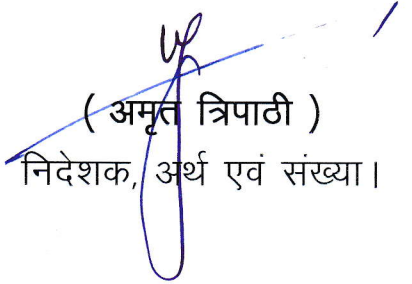 ( अमृत त्रिपाठी )
निदेशक, अर्थ एवं संख्या।